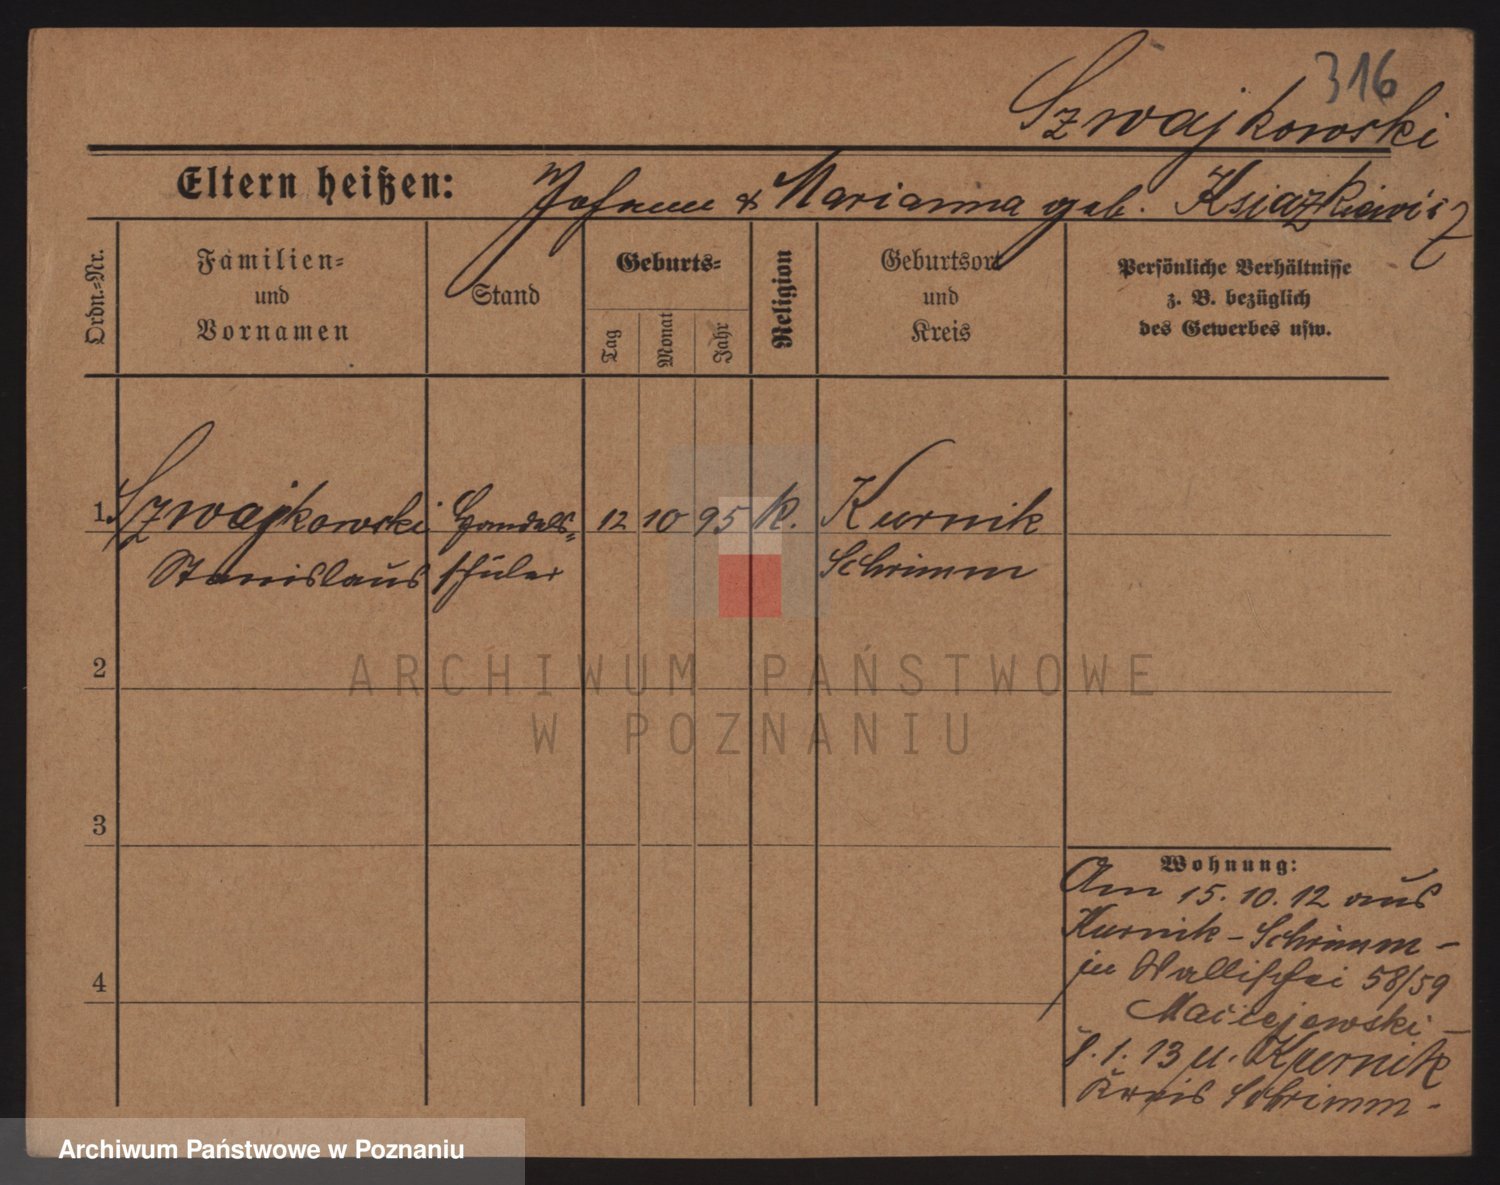 316
Szwajkowski
Eltern heißen: Johann & Marianna geb. Ksiazkiewicz
Ordn.-Nr.
Familien-
und
Vornamen
Stand
Geburts-
Tag
Monat
Jahr
Religion
Geburtsort
und
Kreis
Persönliche Verhältnisse
z. B. bezüglich
des Gewerbes usw.
1 Szwajkowski Handels- 12 10 95 k. Kurnik
Stanislaus schüler Schrimm
2
3
4
Wohnung:
Am 15. 10. 12 aus
Kurnik - Schrimm -
in Wallischei 58/59
Maciejewski -
8. 1. 13 n. Kurnik
Kreis Schrimm -
ARCHIWUM PAŃSTWOWE
W POZNANIU
Archiwum Państwowe w Poznaniu